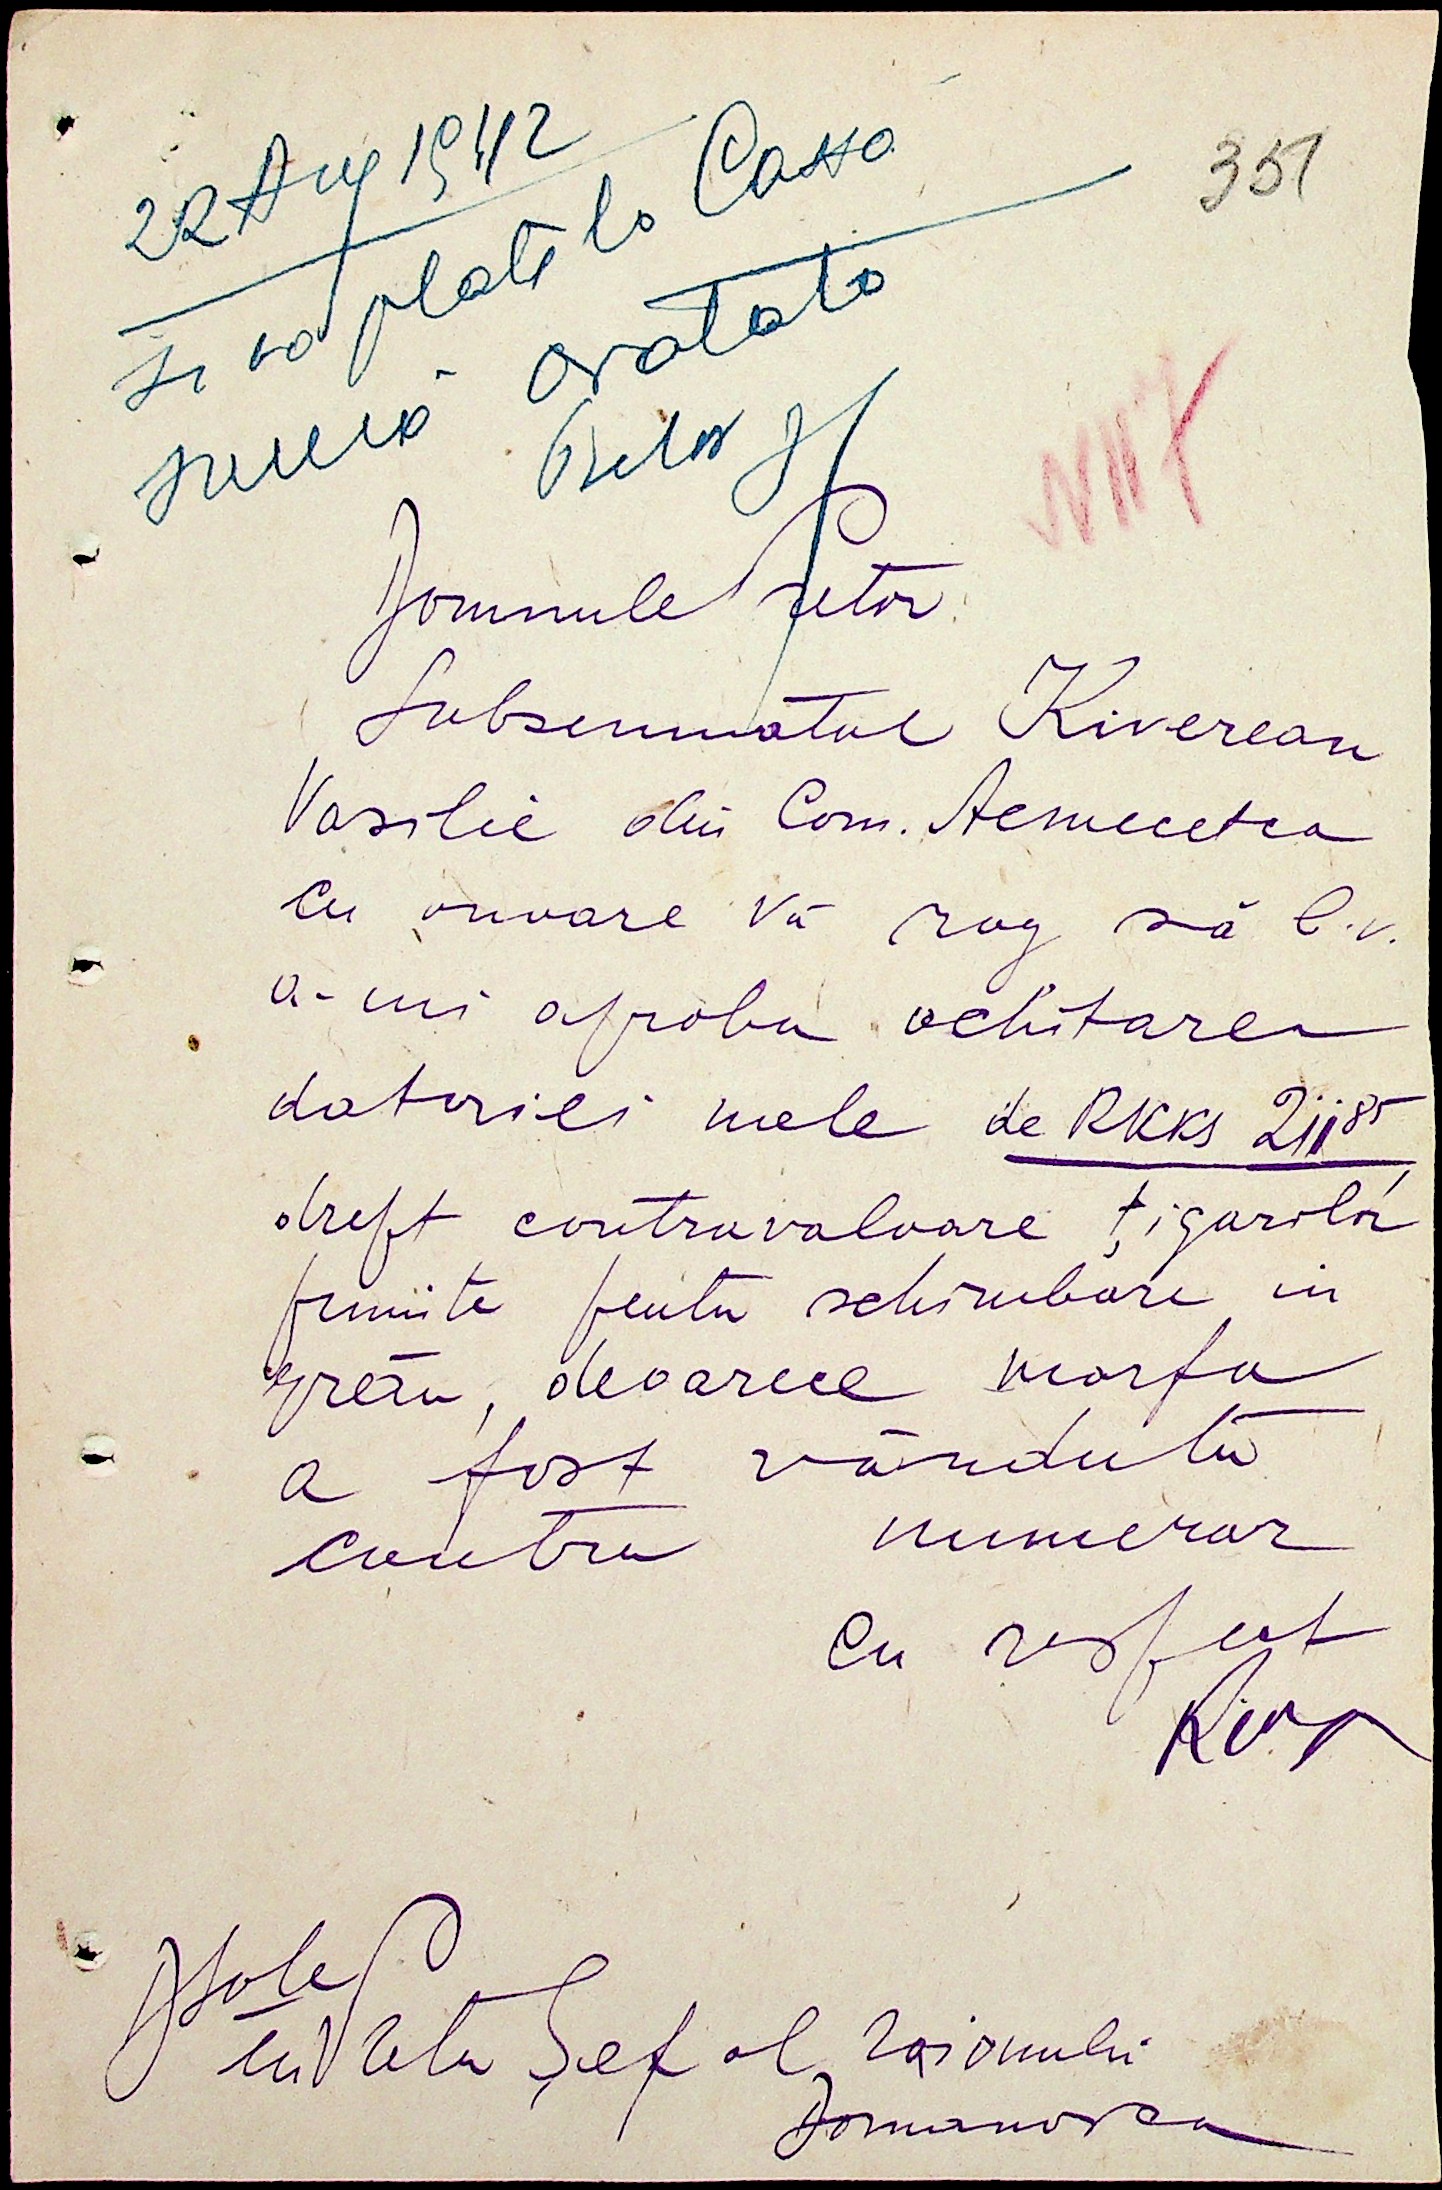 351
22 Aug 1942
Se va plati la Cassa
suma aratata
Pretor
Domnule Pretor
Subsemnatul Kiverean
Vasilie din Com. Acmecetca
cu onoare Vă rog să b.v.
a-mi aproba achitarea
datoriei mele de RKKS 211 85
drept contravaloare țigarilor
primite pentu schimbare in
grău, deoarece marfa
a fost vândută
contra numerar
Cu respect
Dsale
Dlui Pretor Șef al raionului
Domanovca